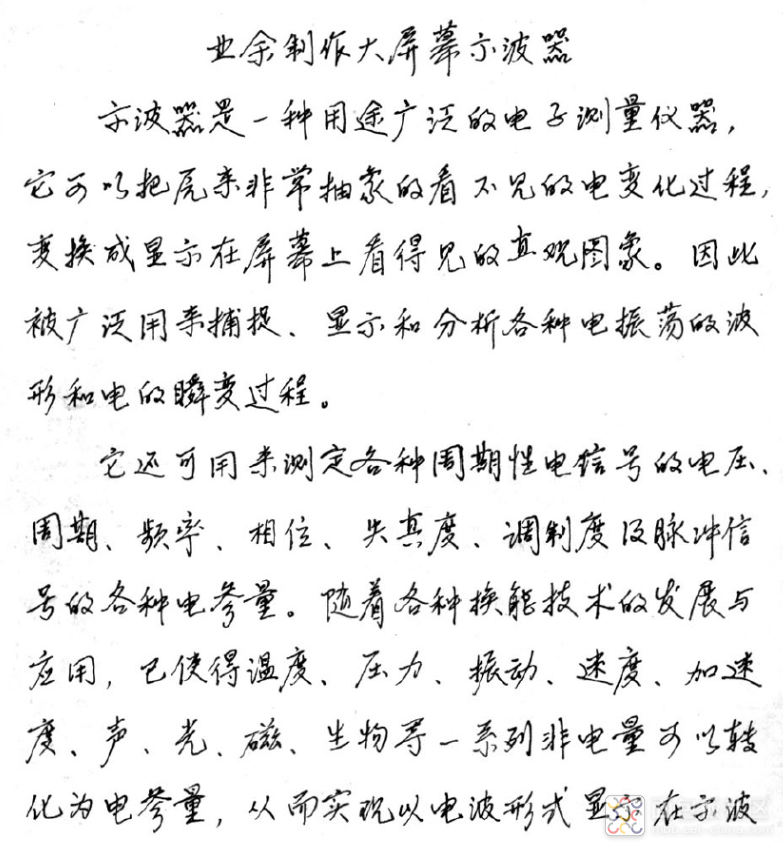 业余制作大屏幕示波器
示波器是一种用途广泛的电子测量仪器，
它可以把原来非常抽象的看不见的电变化过程，
变换成显示在屏幕上看得见的直观图象。因此
被广泛用来捕捉、显示和分析各种电振荡的波
形和电的瞬变过程。
它还可用来测定各种周期性电信号的电压、
周期、频率、相位、失真度、调制度及脉冲信
号的各种电参量。随着各种换能技术的发展与
应用，已使得温度、压力、振动、速度、加速
度、声、光、磁、生物等一系列非电量可以转
化为电参量，从而实现以电波形式显示在示波